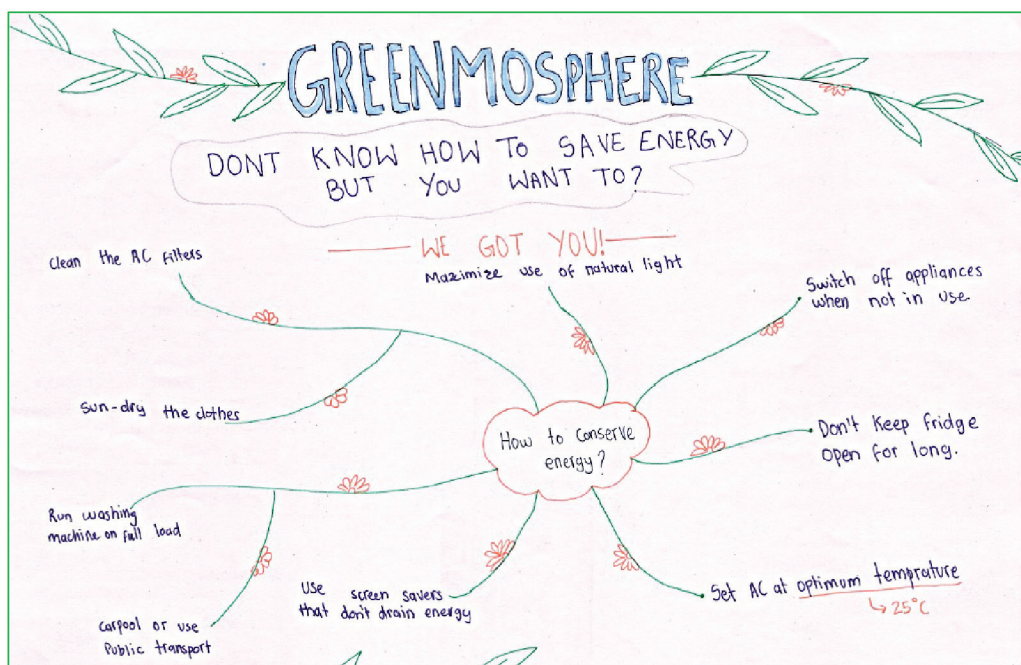 GREENMOSPHERE
DONT KNOW HOW TO SAVE ENERGY
BUT YOU WANT TO?
WE GOT YOU!
Clean the AC filters
Maximize use of natural light
Switch off appliances
when not in use
Sun-dry the clothes
How to conserve
energy?
Don't Keep fridge
open for long.
Run washing
machine on full load
Carpool or use
Public transport
Use screen savers
that don't drain energy
Set AC at optimum temprature
↳ 25°C